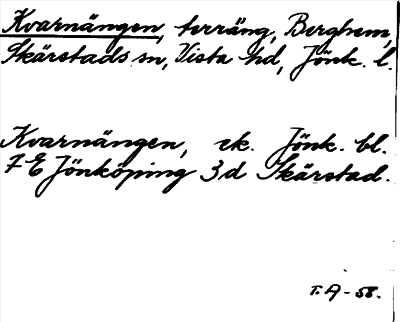 Kvarnängen, terräng, Berghem,
Skärstads sn, Vista hd, Jönk. l.
Kvarnängen, ek. Jönk. bl.
7 E Jönköping 3d Skärstad.
T. A - 58.